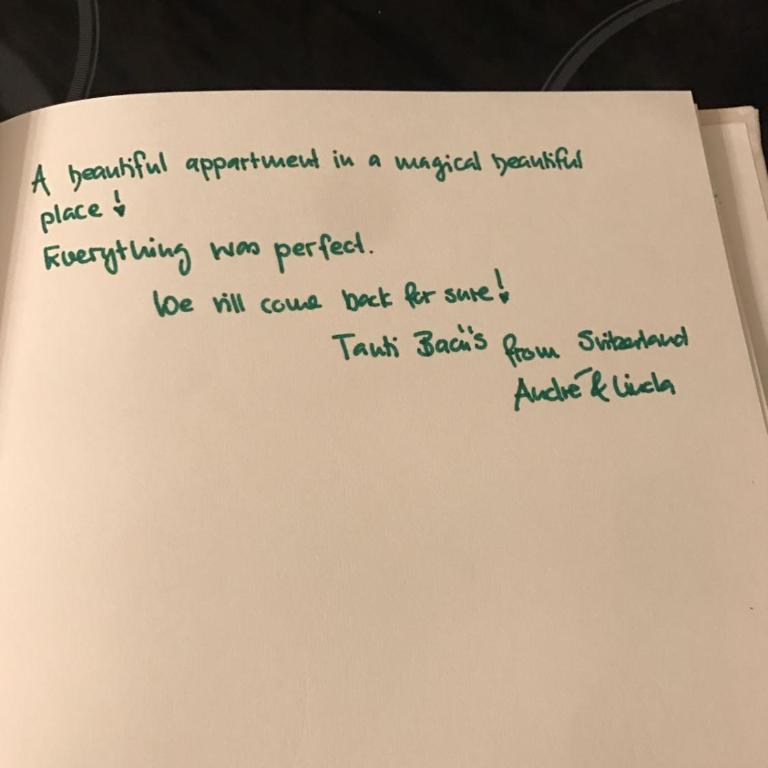 A beautiful appartment in a magical beautiful
place!
Everything was perfect.
We will come back for sure!
Tanti Bacii's from Switzerland
André & Linda